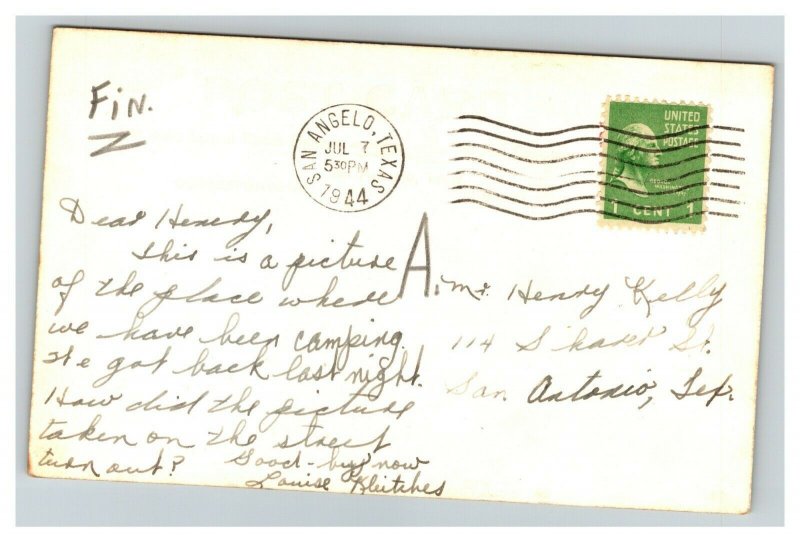 Fin.
SAN ANGELO, TEXAS
JUL 7
5 30 PM
1944
UNITED
STATES
POSTAGE
1 CENT 1
Dear Henery,
this is a picture
of the place where
we have been camping.
We got back last night.
How did the picture
taken on the street
turn out? Good-buy now
Louise
A.
Mr. Henry Kelly
114 St.
San Antonio, Tex.